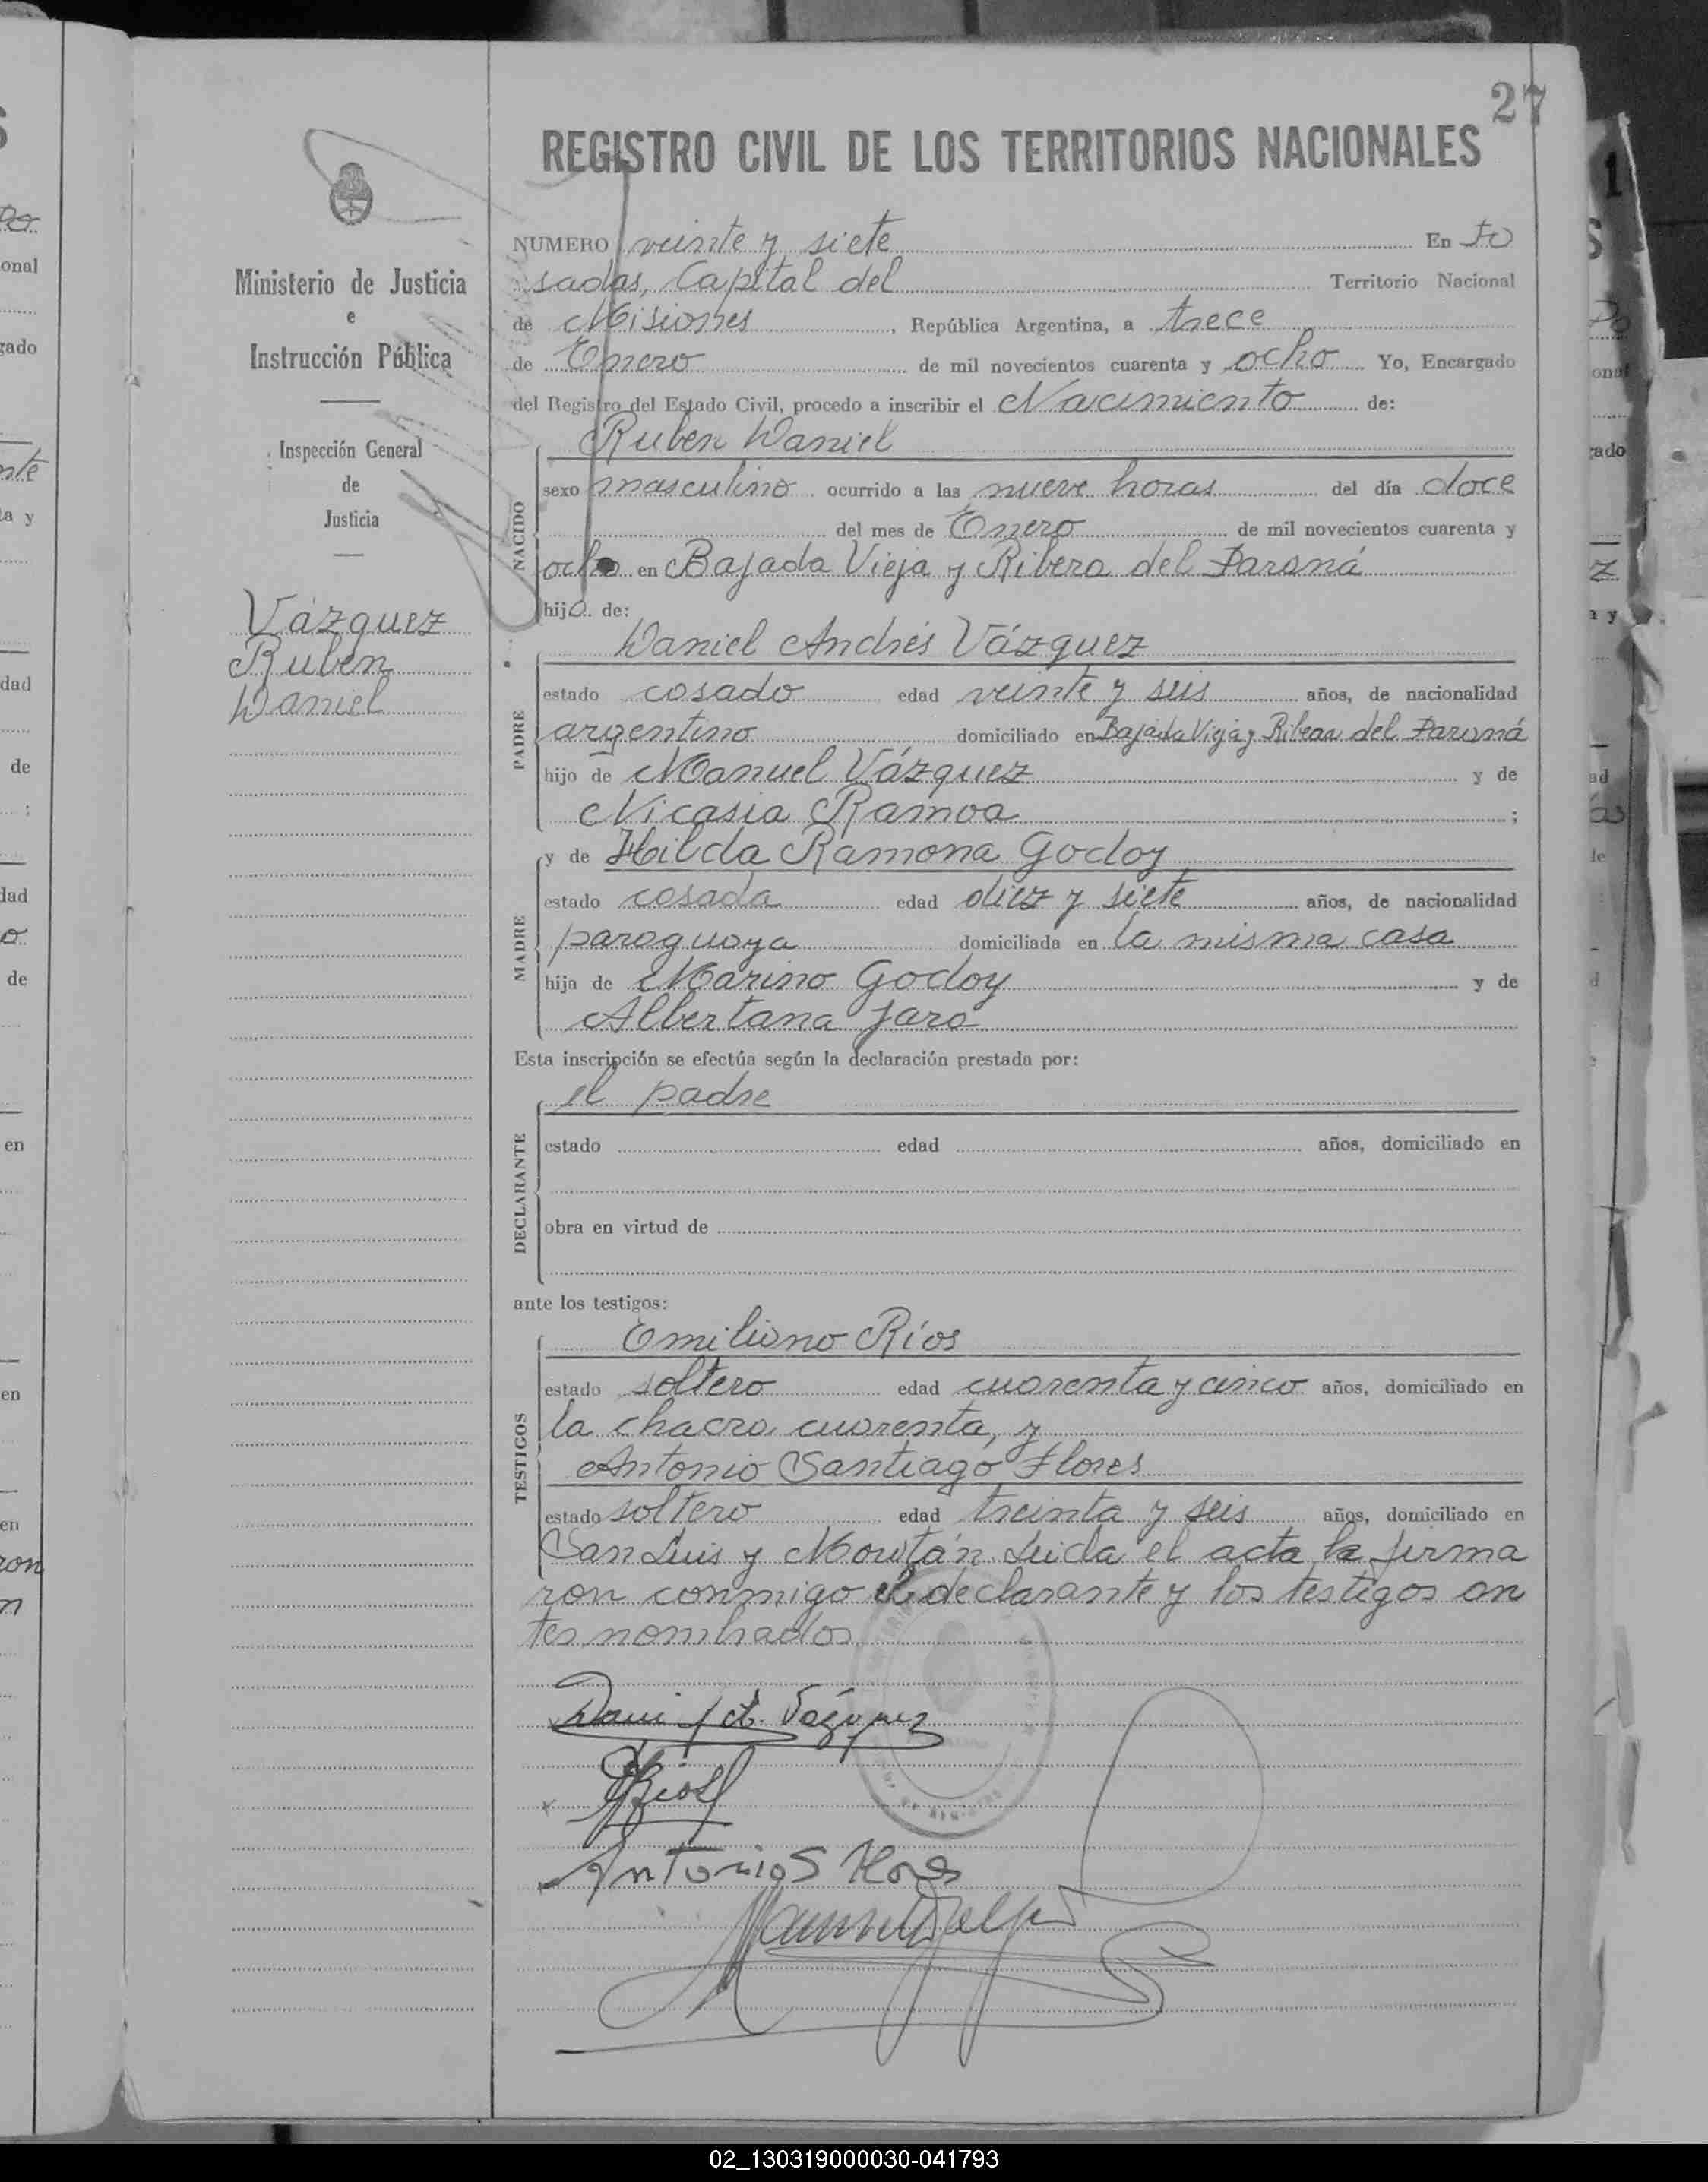 27
REGISTRO CIVIL DE LOS TERRITORIOS NACIONALES
Ministerio de Justicia
e
Instrucción Pública
Inspección General
de
Justicia
Vázquez
Ruben
Daniel
NUMERO veinte y siete En Po
sadas, Capital del Territorio Nacional
de Misiones, República Argentina, a trece
de Enero de mil novecientos cuarenta y ocho Yo, Encargado
del Registro del Estado Civil, procedo a inscribir el Nacimiento de:
NACIDO
Ruben Daniel
sexo masculino ocurrido a las nueve horas del día doce
del mes de Enero de mil novecientos cuarenta y
ocho en Bajada Vieja y Ribera del Paraná
hijo de:
PADRE
Daniel Andrés Vázquez
estado casado edad veinte y seis años, de nacionalidad
argentino domiciliado en Bajada Vieja y Ribera del Paraná
hijo de Manuel Vázquez y de
Nicasia Ramoa ;
MADRE
y de Hilda Ramona Godoy
estado casada edad diez y siete años, de nacionalidad
paraguaya domiciliada en la misma casa
hija de Marino Godoy y de
Albertana Jara
Esta inscripción se efectúa según la declaración prestada por:
DECLARANTE
el padre
estado edad años, domiciliado en
obra en virtud de
ante los testigos:
TESTIGOS
Emiliano Ríos
estado soltero edad cuarenta y cinco años, domiciliado en
la chacra cuarenta, y
Antonio Santiago Flores
estado soltero edad treinta y seis años, domiciliado en
San Luis y Leida el acta la firma
ron conmigo el declarante y los testigos an
tes nombrados
Daniel A. Vázquez
Ríos
Antonio S Flores
02_130319000030-041793